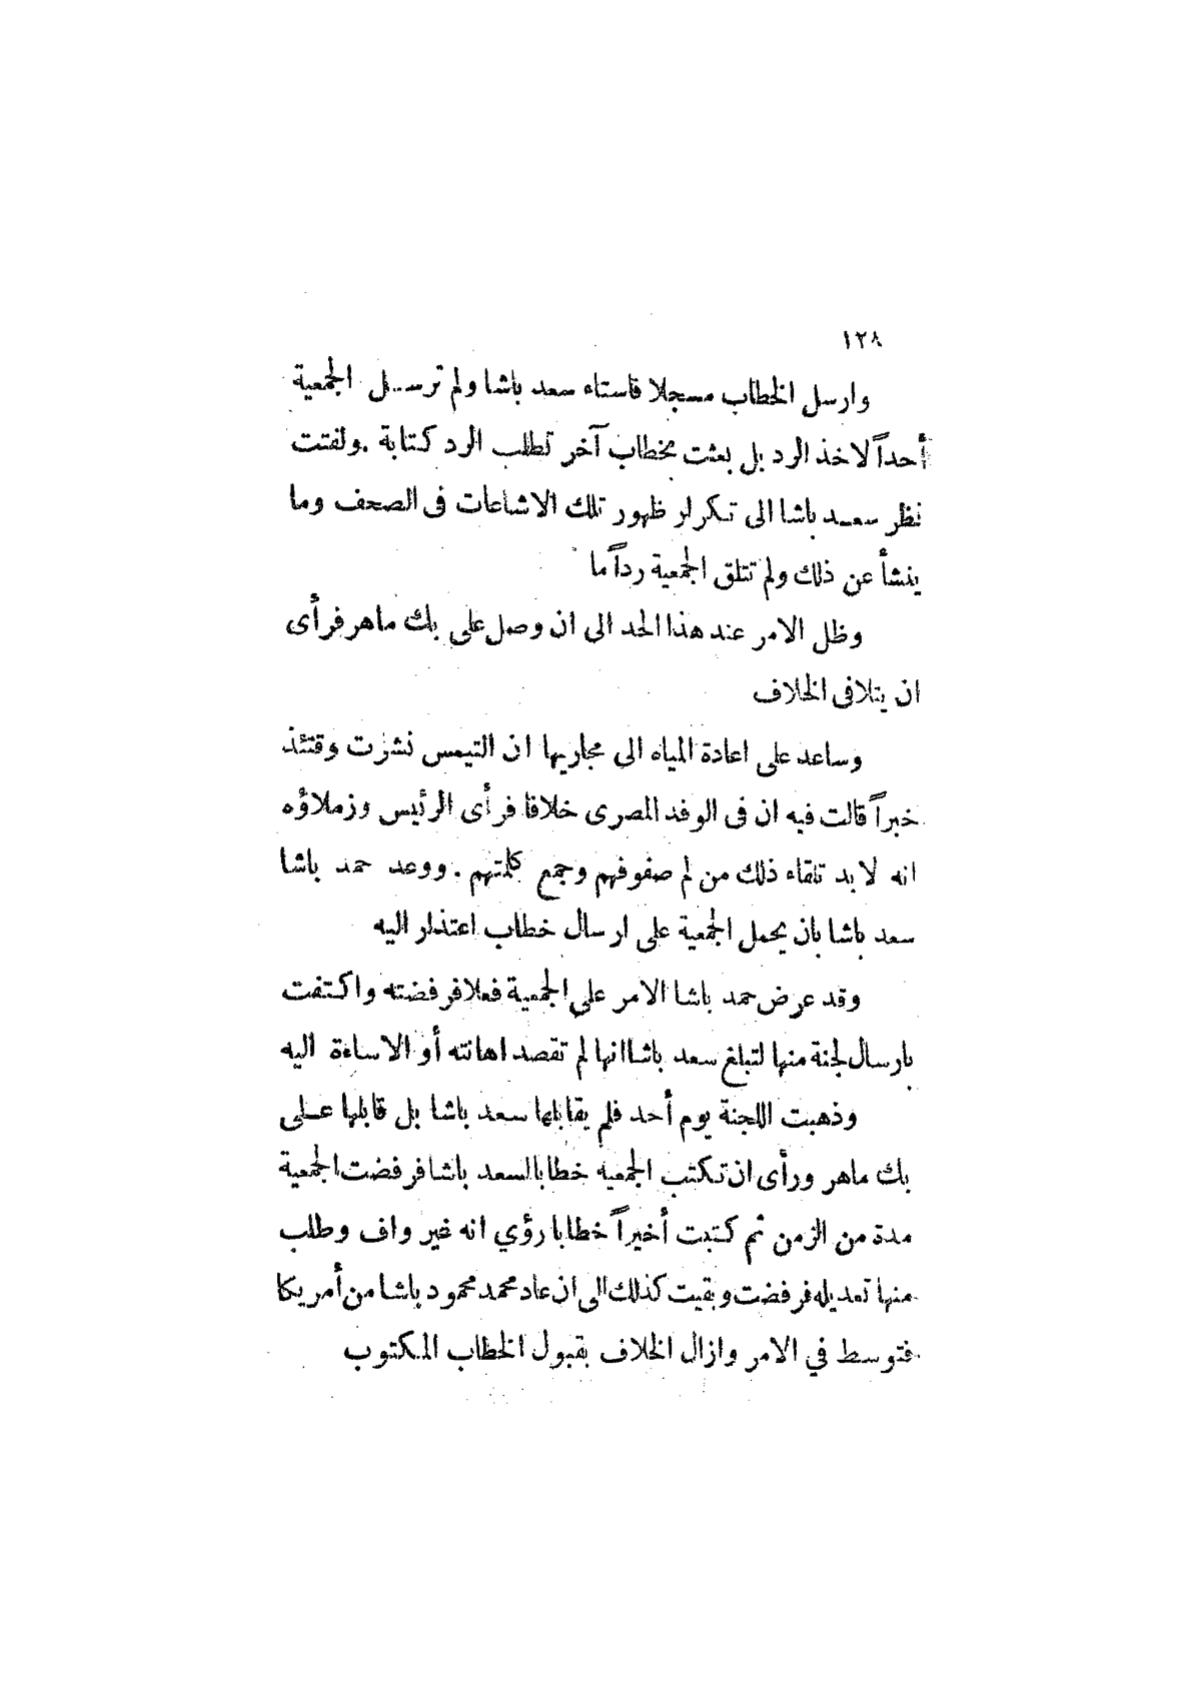 ١٢٨
وارسل الخطاب مسجلا فاستاء سعد باشا ولم ترسل الجمعية
أحداً لاخذ الرد بل بعثت بخطاب آخر تطلب الرد كتابة . ولفتت
نظر سعد باشا الى تكرار ظهور تلك الاشاعات فى الصحف وما
ينشأ عن ذلك ولم تتلق الجمعية رداً ما
وظل الامر عند هذا الحد الى ان وصل على بك ماهر فرأى
ان يتلافى الخلاف
وساعد على اعادة المياه الى مجاريها ان التيمس نشرت وقتئذ
خبراً قالت فيه ان فى الوفد المصرى خلافا فرأى الرئيس وزملاؤه
انه لا بد تلقاء ذلك من لم صفوفهم وجمع كلمتهم . ووعد حمد باشا
سعد باشا بان يحمل الجمعية على ارسال خطاب اعتذار اليه
وقد عرض حمد باشا الامر على الجمعية فعلا فرفضته واكتفت
بارسال لجنة منها لتبلغ سعد باشا انها لم تقصد اهانته أو الاساءة اليه
وذهبت اللجنة يوم أحد فلم يقابلها سعد باشا بل قابلها على
بك ماهر ورأى ان تكتب الجمعيه خطابا لسعد باشا فرفضت الجمعية
مدة من الزمن ثم كتبت أخيراً خطابا رؤي انه غير واف وطلب
منها تعديله فرفضت وبقيت كذلك الى ان عاد محمد محمود باشا من أمريكا
فتوسط في الامر وازال الخلاف بقبول الخطاب المكتوب